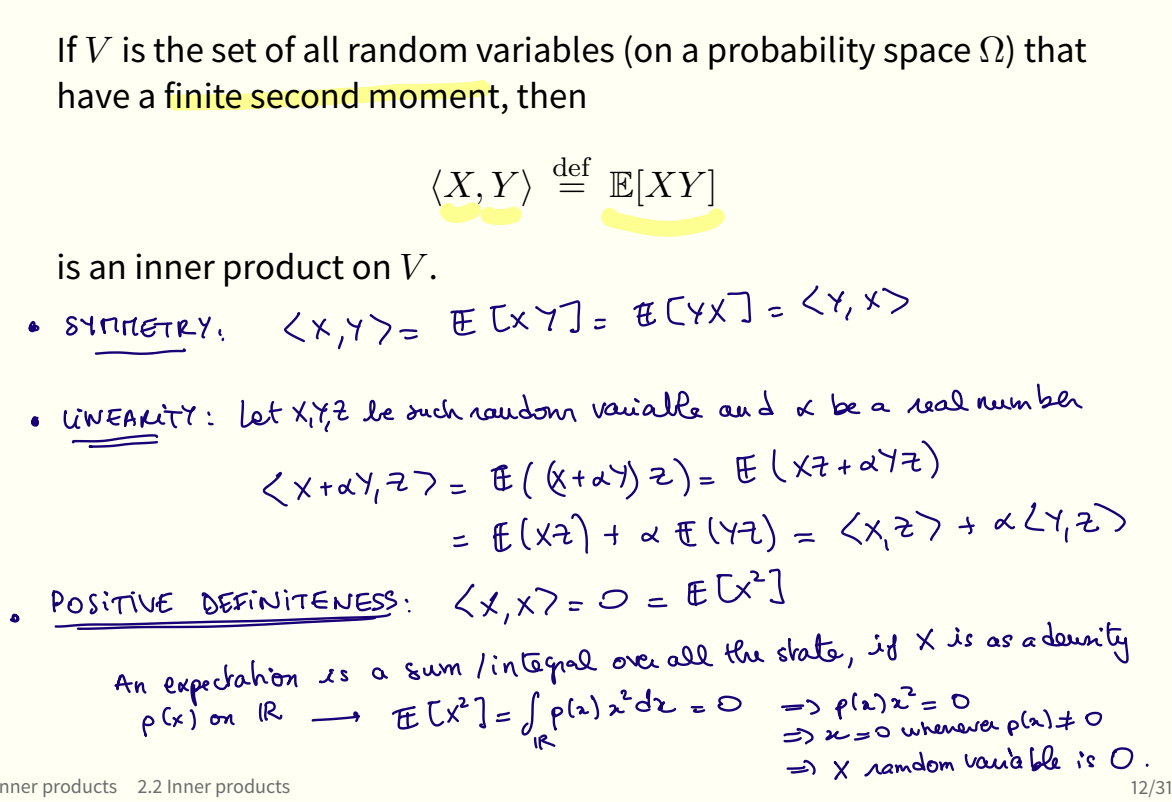 If V is the set of all random variables (on a probability space Ω) that
have a finite second moment, then
⟨X, Y⟩ def= 𝔼[XY]
is an inner product on V.
• SYMMETRY: <X,Y> = 𝔼[XY] = 𝔼[YX] = <Y,X>
• LINEARITY: Let X,Y,Z be such random variable and α be a real number
<X+αY,Z> = 𝔼((X+αY)Z) = 𝔼(XZ+αYZ)
= 𝔼(XZ) + α 𝔼(YZ) = <X,Z> + α<Y,Z>
• POSITIVE DEFINITENESS: <X,X> = 0 = 𝔼[X²]
An expectation is a sum/integral over all the state, if X is as a density
p(x) on ℝ → 𝔼[X²] = ∫_ℝ p(x) x² dx = 0 => p(x)x² = 0
=> x=0 whenever p(x)≠0
=> X random variable is 0.
nner products 2.2 Inner products 12/31